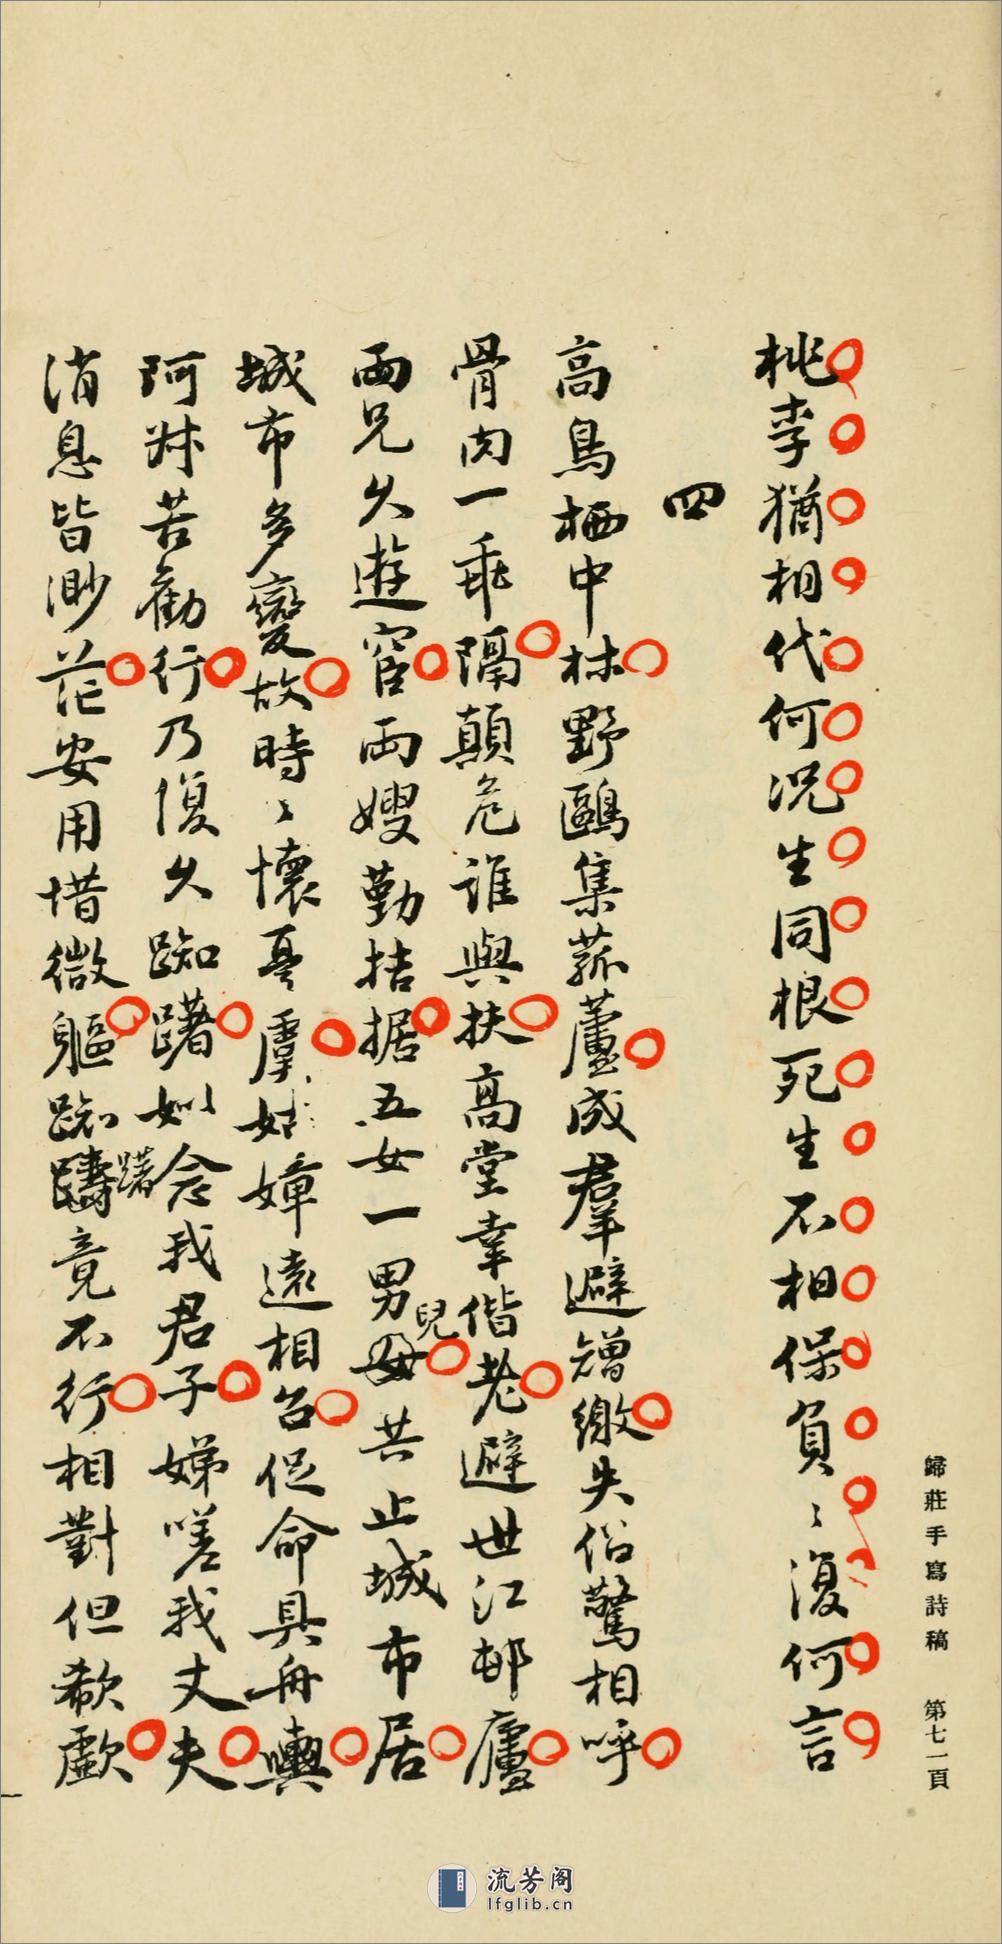 桃李猶相代何況生同根死生不相保負〻復何言
四
高鳥栖中林野鷗集菰蘆成羣避矰繳失侶驚相呼
骨肉一乖隔顛危誰與扶高堂幸偕老避世江邨廬
兩兄久遊宦兩嫂勤拮据五女一男兒共止城市居
城市多變故時〻懷憂虞姑嫜遠相召促命具舟輿
阿妹苦勸行乃復久踟躇躇姒念我君子娣嗟我丈夫
消息皆渺茫安用惜微軀踟躇竟不行相對但欷歔
歸莊手寫詩稿 第七一頁
流芳阁
lfglib.cn